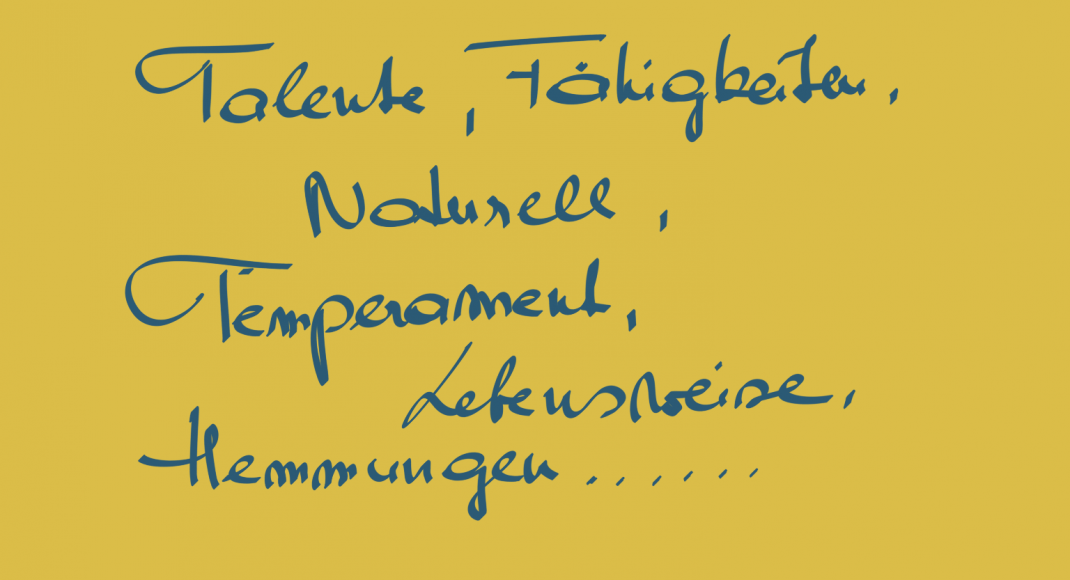 Talente, Fähigkeiten,
Naturell,
Temperament,
Lebensweise,
Hemmungen......